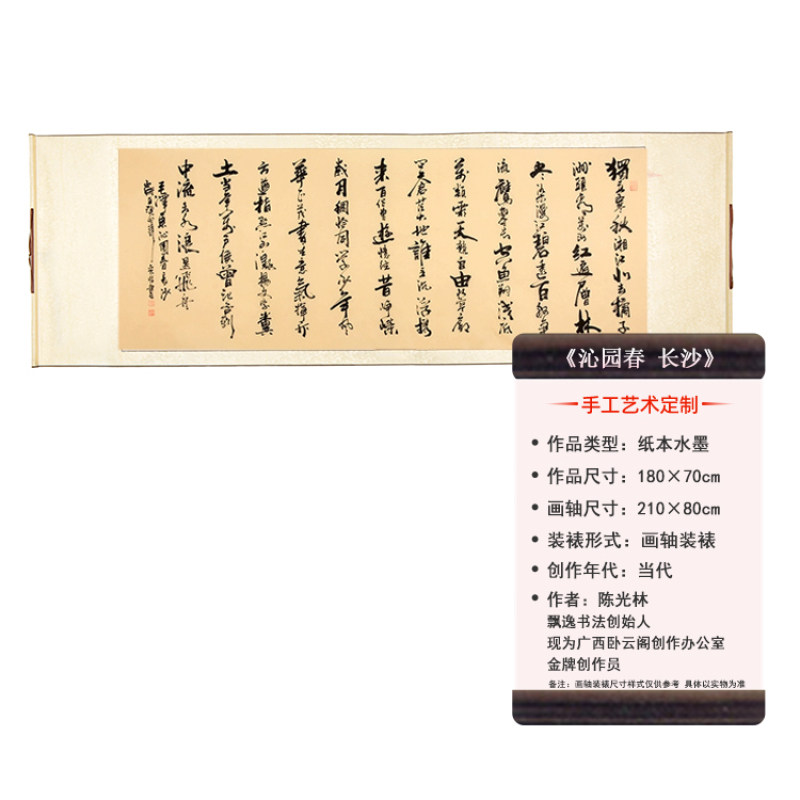 獨立寒秋湘江北去橘子
洲頭看萬山紅遍層林
盡染漫江碧透百舸爭
流鷹擊長空魚翔淺底
萬類霜天競自由悵寥廓
問蒼茫大地誰主沉浮攜
來百侶曾遊憶往昔崢嶸
歲月稠恰同學少年風
華正茂書生意氣揮斥
方遒指點江山激揚文字糞
土當年萬戶侯曾記否到
中流擊水浪遏飛舟
毛澤東沁園春長沙
《沁园春 长沙》
手工艺术定制
• 作品类型：纸本水墨
• 作品尺寸：180×70cm
• 画轴尺寸：210×80cm
• 装裱形式：画轴装裱
• 创作年代：当代
• 作者：陈光林
飘逸书法创始人
现为广西卧云阁创作办公室
金牌创作员
备注：画轴装裱尺寸样式仅供参考 具体以实物为准